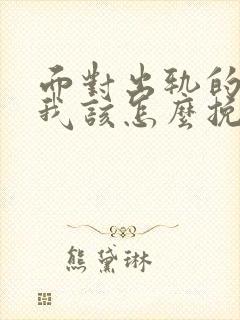 而對出軌的
我該怎麼挽
熊黛琳